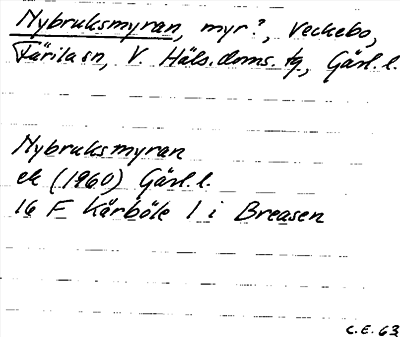 Nybruksmyran, myr?, Veckebo,
Färila sn, V. Häls. doms. tg, Gävl. l.
Nybruksmyran
ek (1960) Gävl. l.
16 F Kårböle 1 i Breasen
C.E. 63